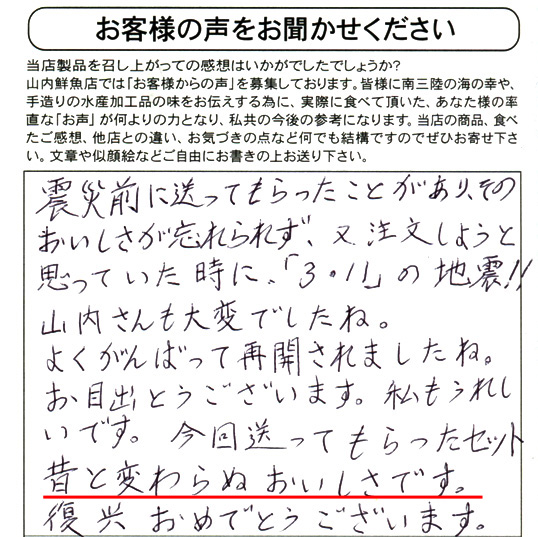 お客様の声をお聞かせください
当店製品を召し上がっての感想はいかがでしたでしょうか?
山内鮮魚店では「お客様からの声」を募集しております。皆様に南三陸の海の幸や、
手造りの水産加工品の味をお伝えする為に、実際に食べて頂いた、あなた様の率
直な「お声」が何よりの力となり、私共の今後の参考になります。当店の商品、食べ
たご感想、他店との違い、お気づきの点など何でも結構ですのでぜひお寄せ下さ
い。文章や似顔絵などご自由にお書きの上お送り下さい。
震災前に送ってもらったことがあり、その
おいしさが忘れられず、又注文しようと
思っていた時に、「3・11」の地震!!
山内さんも大変でしたね。
よくがんばって再開されましたね。
お目出とうございます。私もうれし
いです。今回送ってもらったセット
昔と変わらぬおいしさです。
復興おめでとうございます。